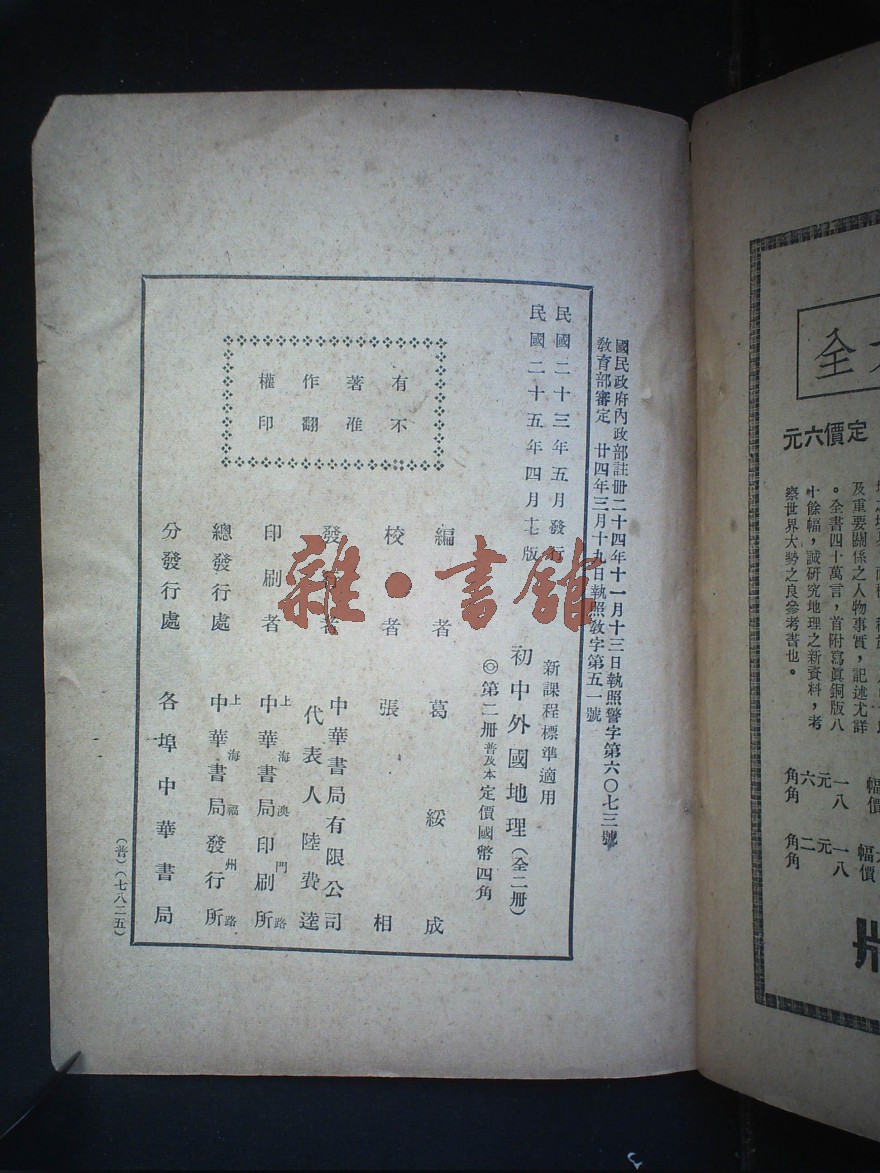 國民政府內政部註冊二十四年十一月十三日執照警字第六〇七三號
教育部審定 廿四年三月十九日執照教字第五一號
民國二十三年五月發行
民國二十五年四月十七版
新課程標準適用
初中外國地理(全二冊)
◎第二冊普及本定價國幣四角
有不
著准
作翻
權印
編者 葛綏成
校者 張相
發行者 中華書局有限公司
代表人陸費逵
印刷者 上海澳門路
中華書局印刷所
總發行處 上海福州路
中華書局發行所
分發行處 各埠中華書局
(普)(七八二五)
雜·書館
全
定價六元
及重要關係之人物事實,記述尤詳
。全書四十萬言,首附寫眞銅版八
十餘幅,誠研究地理之新資料,考
察世界大勢之良參考書也。